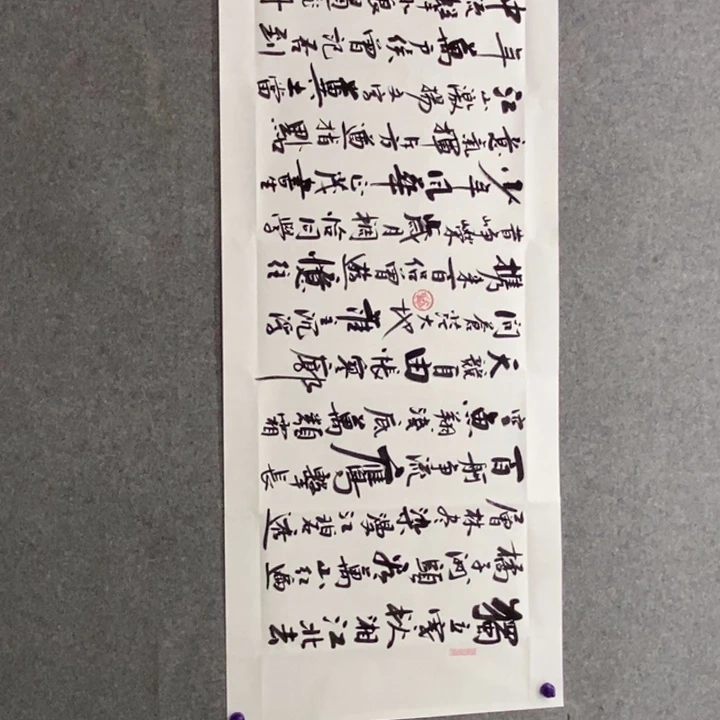 獨立寒秋湘江北去
橘子洲頭看萬山红遍
層林盡染漫江碧透
百舸争流鷹擊長
空魚翔淺底萬類霜
天競自由悵寥廓
問蒼茫大地誰主沉浮
攜來百侣曾遊憶往
昔崢嶸歲月稠恰同學
少年風華正茂書生
意氣揮斥方遒指點
江山激揚文字糞土當
年萬户侯曾記否到
中流擊水浪遏